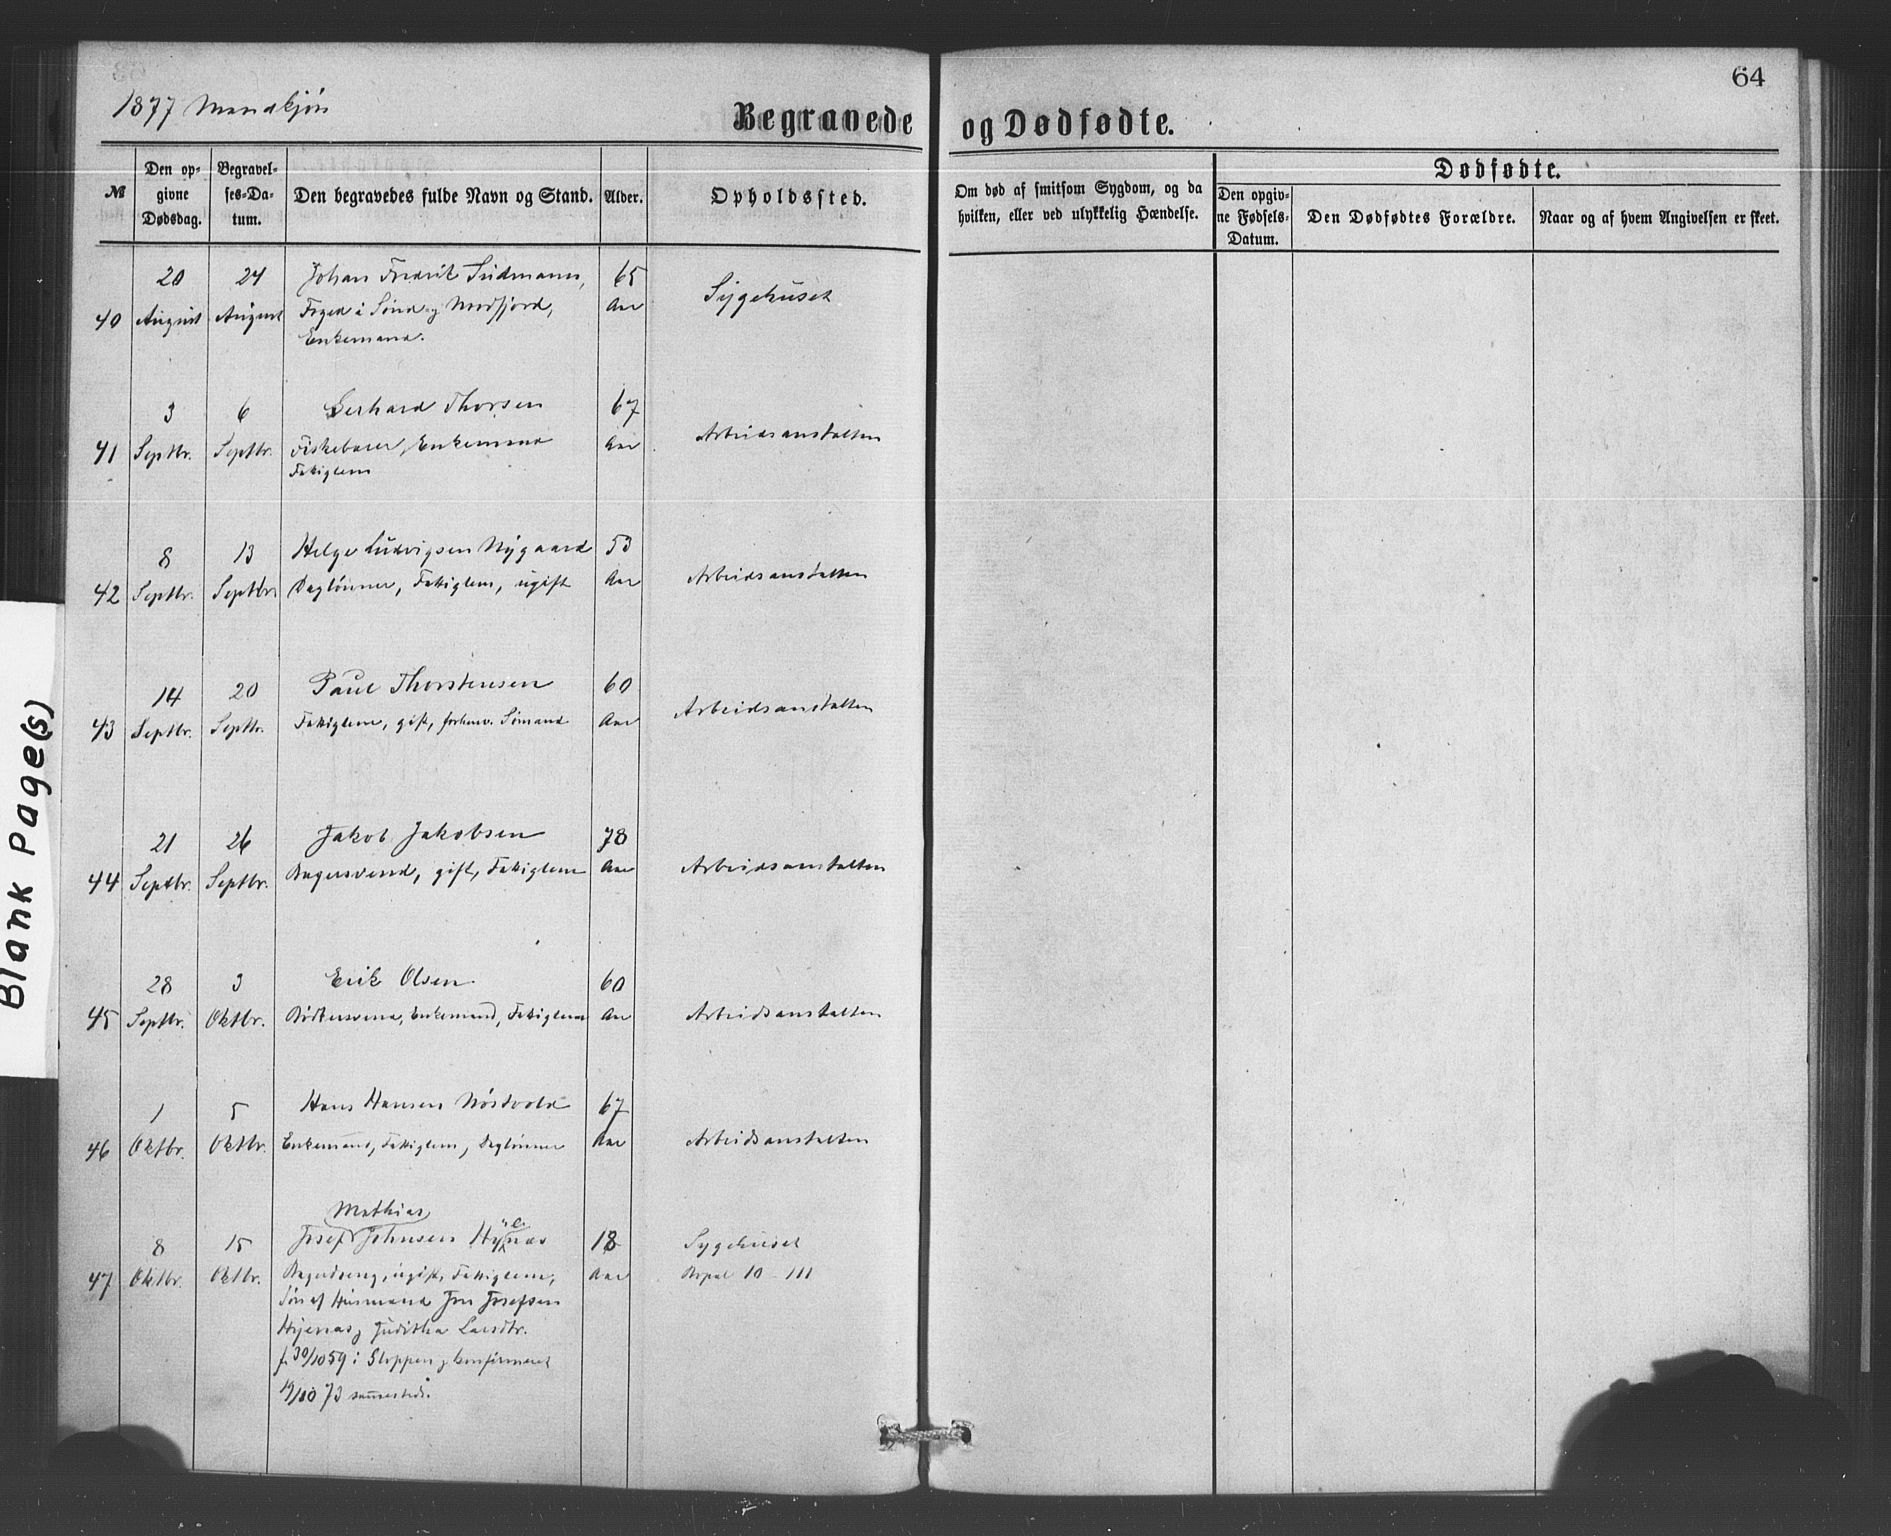 64
1877 Mandkjøn
Begravede og Dødfødte.
№
Den opgivne Dødsdag.
Begravelses-Datum.
Den begravedes fulde Navn og Stand.
Alder.
Opholdssted.
Om død af smitsom Sygdom, og da hvilken, eller ved ulykkelig Hændelse.
Dødfødte.
Den opgivne Fødsels-Datum.
Den Dødfødtes Forældre.
Naar og af hvem Angivelsen er skeet.
20 24 Johan Fredrik Sudmann, 65 Sygehuset
40 August August Foged i Sönd- og Nordfjord, Aar
Enkemand.
3 6 Gerhard Thorsen 67 Arbeidsanstalten
41 Septbr. Septbr. Fiskebærer, Enkemand Aar
Fattiglem
8 13 Helge Ludvigsen Nygaard 53 Arbeidsanstalten
42 Septbr. Septbr. Daglönner, Fattiglem, ugift Aar
14 20 Paul Thorstensen 60 Arbeidsanstalten
43 Septbr. Septbr. Fattiglem, gift, forhenv. Sömand Aar
21 26 Jakob Jakobsen 78
44 Septbr. Septbr. Bagersvend, gift, Fattiglem Aar Arbeidsanstalten
28 3 Erik Olsen 60
45 Septbr. Oktbr. Bödkersvend, Enkemand, Fattiglem Aar Arbeidsanstalten
1 5 Hans Hansen Nöstvold 67
46 Oktbr. Oktbr. Enkemand, Fattiglem, Daglönner Aar Arbeidsanstalten
Mathias
8 15 Josef Johnsen 18 Sygehuset
47 Oktbr. Oktbr. Bagerdreng, ugift, Fattiglem, Aar 10 - 111
Sön af Husmand Jon Josefsen
Hyenæs og Juditha Larsdtr.
f. 30/10 59 i Gloppen og konfirmeret
19/10 73 sammesteds.
Blank Page(s)